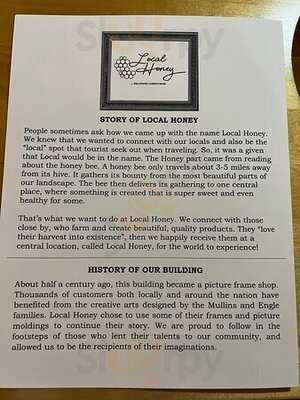 Local
Honey
STORY OF LOCAL HONEY
People sometimes ask how we came up with the name Local Honey.
We knew that we wanted to connect with our locals and also be the
"local" spot that tourist seek out when traveling. So, it was a given
that Local would be in the name. The Honey part came from reading
about the honey bee. A honey bee only travels about 3-5 miles away
from its hive. It gathers its bounty from the most beautiful parts of
our landscape. The bee then delivers its gathering to one central
place, where something is created that is super sweet and even
healthy for some.
That's what we want to do at Local Honey. We connect with those
close by, who farm and create beautiful, quality products. They "love
their harvest into existence", then we happily receive them at a
central location, called Local Honey, for the world to experience!
HISTORY OF OUR BUILDING
About half a century ago, this building became a picture frame shop.
Thousands of customers both locally and around the nation have
benefited from the creative arts designed by the Mullins and Engle
families. Local Honey chose to use some of their frames and picture
moldings to continue their story. We are proud to follow in the
footsteps of those who lent their talents to our community, and
allowed us to be the recipients of their imaginations.